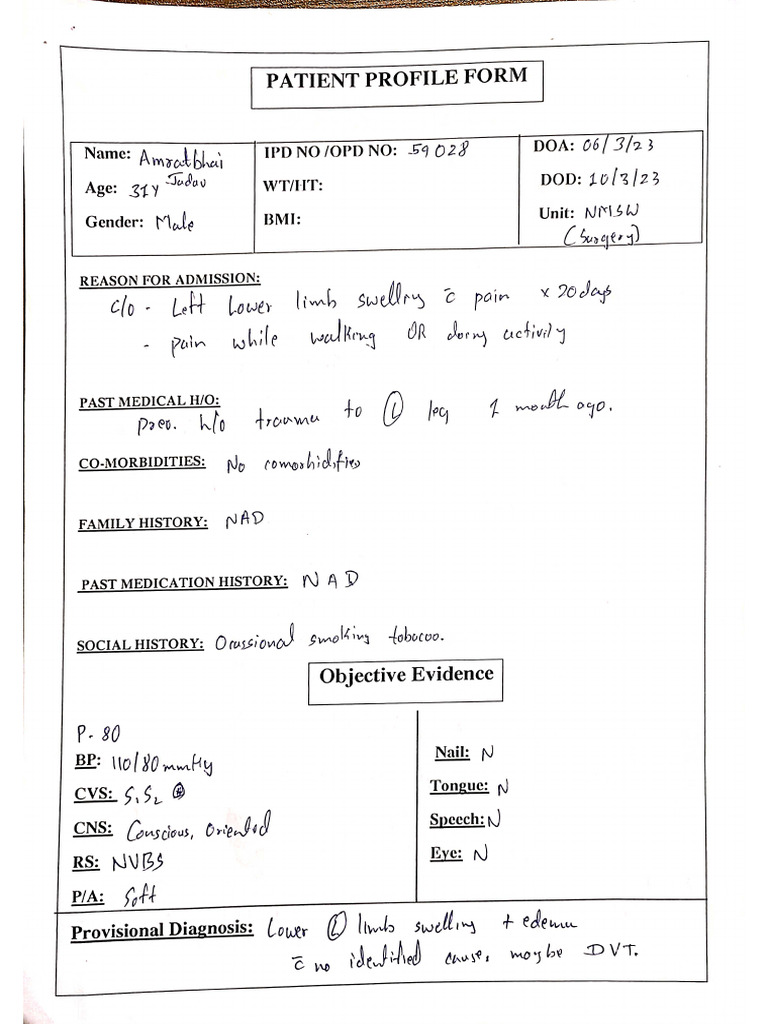 PATIENT PROFILE FORM
Name: Amratbhai Jadav
Age: 31Y
Gender: Male
IPD NO /OPD NO: 59028
WT/HT:
BMI:
DOA: 06/3/23
DOD: 10/3/23
Unit: NMSW
(Surgery)
REASON FOR ADMISSION:
C/o - Left Lower limb swelling c̄ pain x 20days
- pain while walking OR doing activity
PAST MEDICAL H/O:
Prev. h/o trauma to Ⓛ leg 1 month ago.
CO-MORBIDITIES: No comorbidities
FAMILY HISTORY: NAD
PAST MEDICATION HISTORY: NAD
SOCIAL HISTORY: Ocassional smoking tobacoo.
Objective Evidence
P - 80
BP: 110/80 mmHg
CVS: S₁S₂
CNS: Conscious, Oriented
RS: NVBS
P/A: Soft
Nail: N
Tongue: N
Speech: N
Eye: N
Provisional Diagnosis: Lower Ⓛ limb swelling + edema
c̄ no identified cause, maybe DVT.